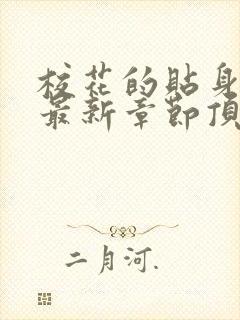 校花的貼身
最新章節頂
二月河.